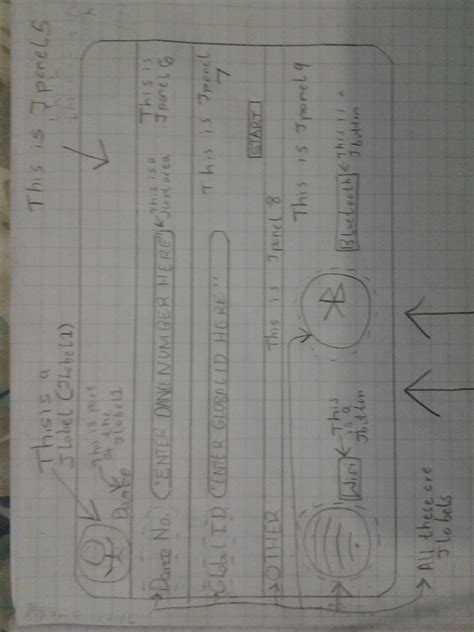 This is Jpanel5
This is a
Jlabel (Jlabel1)
This is part
of the
Jlabel1
Dance
Dance No.
"ENTER DANCE NUMBER HERE"
This is a
Jtextarea
This is
Jpanel 6
Global ID
"ENTER GLOBAL ID HERE"
This is Jpanel
7
START
OTHER
This is Jpanel 8
This is Jpanel 9
Wifi
This
is a
Jbutton
Bluetooth
This is a
Jbutton
All these are
Jlabels